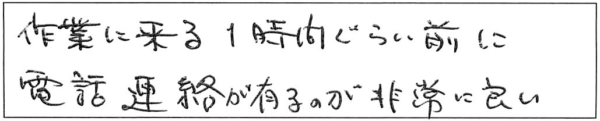 作業に来る1時間ぐらい前に
電話連絡が有るのが非常に良い